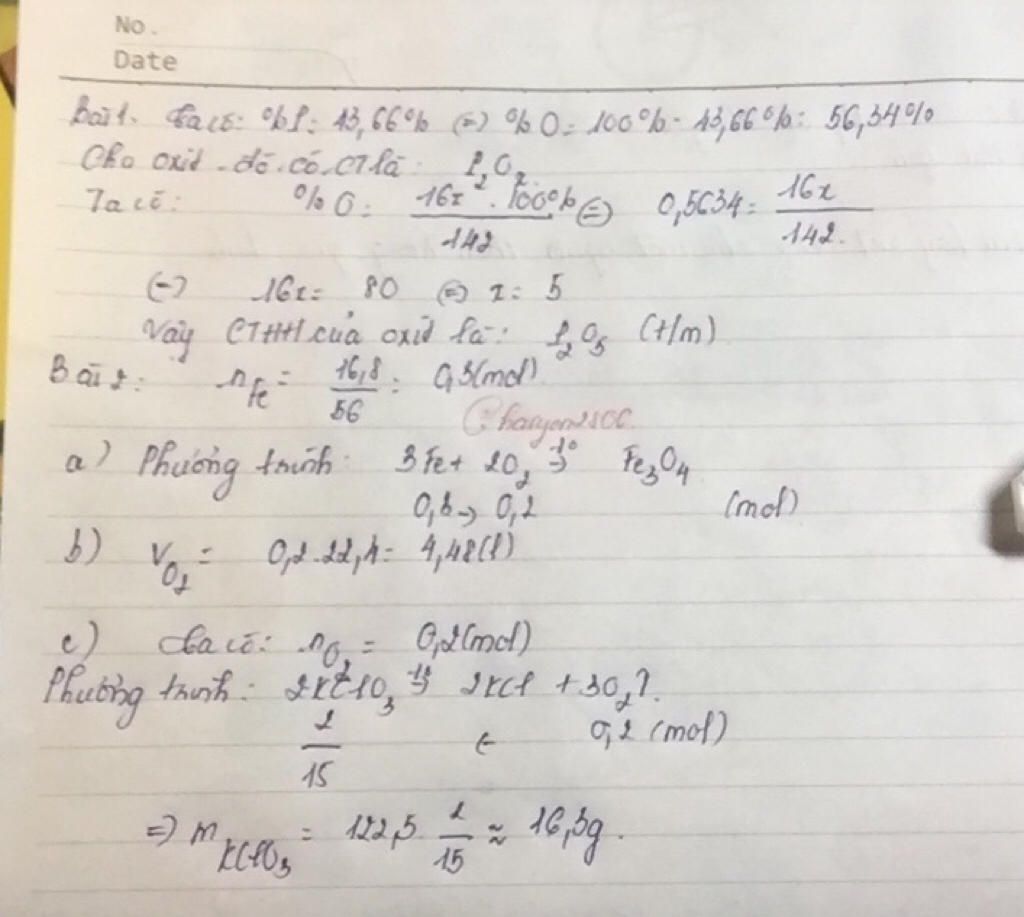 No.
Date
Bài 1. Ta có: %P = 43,66% (=) %O = 100% - 43,66% = 56,34%
Cho oxit đó có CT là: P₂Oₓ
Ta có: %O = 16x . 100% / 142 (=) 0,5634 = 16x / 142.
(=) 16x = 80 (=) x = 5
Vậy CTHH của oxit là: P₂O₅ (t/m)
Bài 2: n_Fe = 16,8 / 56 = 0,3 (mol)
a) Phương trình: 3Fe + 2O₂ t°→ Fe₃O₄
0,3 → 0,2 (mol)
b) V_O₂ = 0,2 . 22,4 = 4,48 (l)
c) Ta có: n_O₂ = 0,2 (mol)
Phương trình: 2KClO₃ t°→ 2KCl + 3O₂↑.
2/15 ← 0,2 (mol)
=) m_KClO₃ = 122,5 . 2/15 ≈ 16,3g.